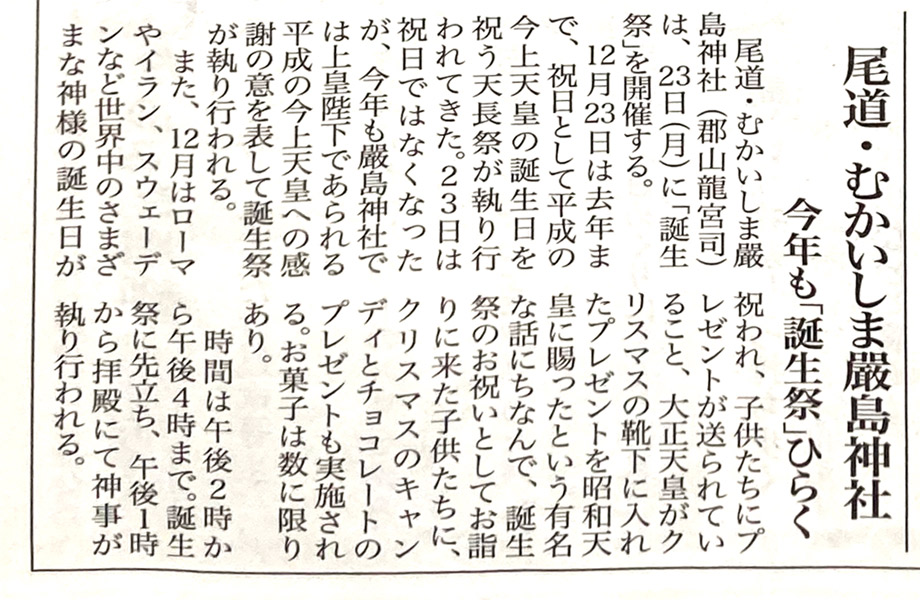 尾道・むかいしま嚴島神社
今年も「誕生祭」ひらく
尾道・むかいしま嚴
島神社（郡山龍宮司）
は、23日（月）に「誕生
祭」を開催する。
12月23日は去年ま
で、祝日として平成の
今上天皇の誕生日を
祝う天長祭が執り行
われてきた。23日は
祝日ではなくなった
が、今年も嚴島神社で
は上皇陛下であられる
平成の今上天皇への感
謝の意を表して誕生祭
が執り行われる。
また、12月はローマ
やイラン、スウェーデ
ンなど世界中のさまざ
まな神様の誕生日が
祝われ、子供たちにプ
レゼントが送られてい
ること、大正天皇がク
リスマスの靴下に入れ
たプレゼントを昭和天
皇に賜ったという有名
な話にちなんで、誕生
祭のお祝いとしてお詣
りに来た子供たちに、
クリスマスのキャン
ディとチョコレートの
プレゼントも実施され
る。お菓子は数に限り
あり。
時間は午後2時か
ら午後4時まで。誕生
祭に先立ち、午後1時
から拝殿にて神事が
執り行われる。